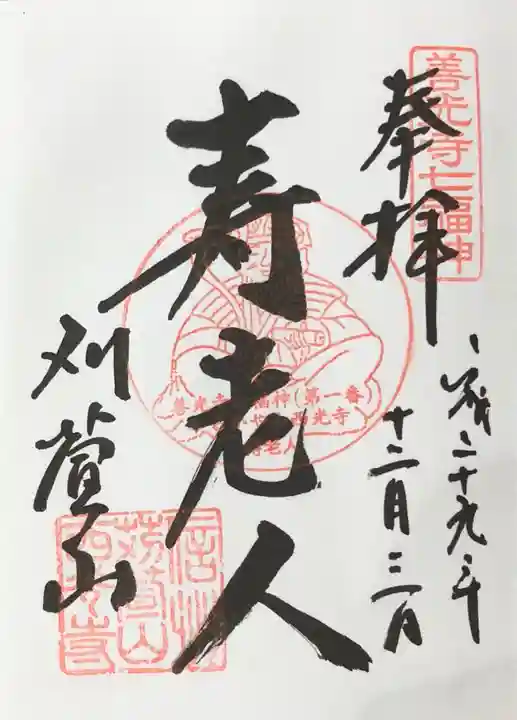 善光寺七福神
奉拝
平成二十九年
十二月三日
寿老人
善光寺七福神(第一番)
西光寺
寿老人
刈萱山